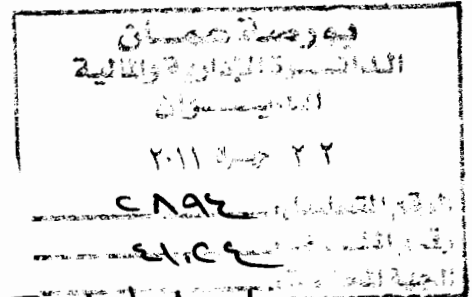 بورصة عمان
الدائرة الإدارية والمالية
الديوان
٢٢ حزيران ٢٠١١
الرقم المتسلسل ٢٨٩٤
رقم الملف ٤١٠٢٤
الجهة المختصة